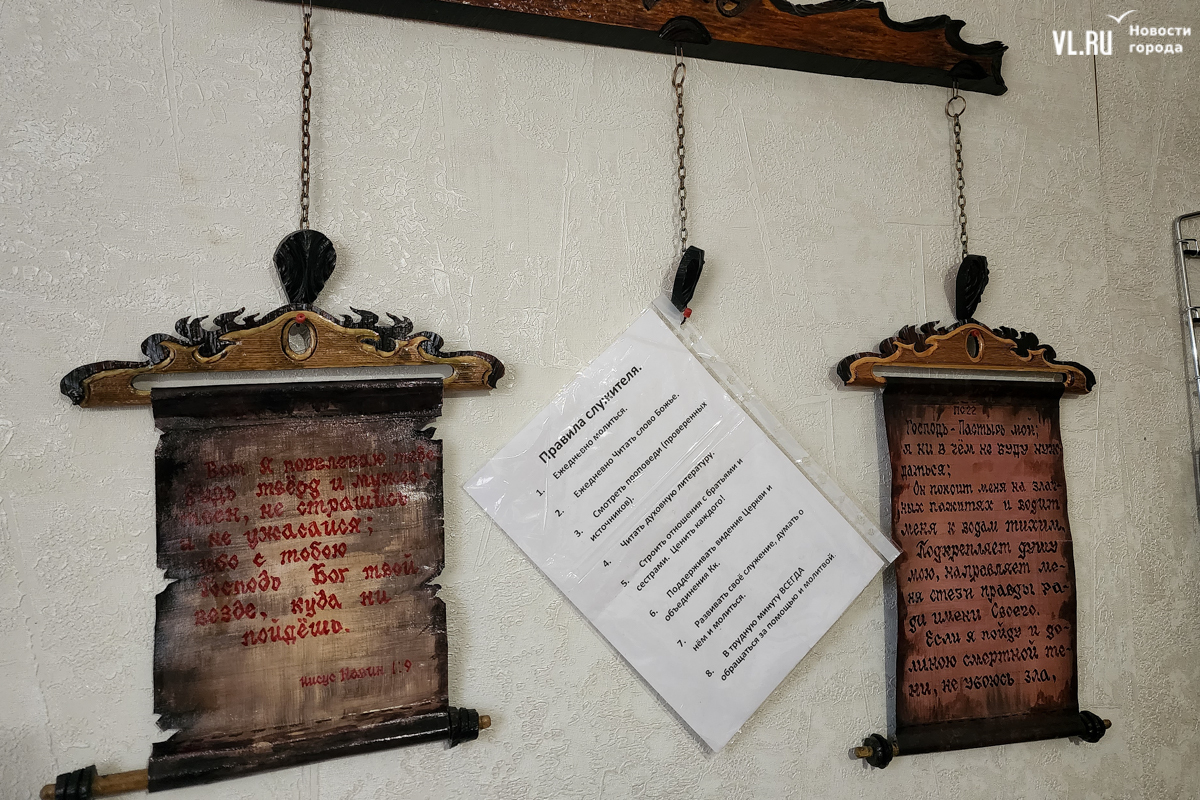 VL.RU
Новости
города
Вот Я повелеваю тебе
будь твёрд и муже-
твен, не страшись
и не ужасайся;
ибо с тобою
Господь Бог твой
везде, куда ни
пойдёшь.
Иисус Навин 1:9
Правила служителя.
1. Ежедневно молиться.
2. Ежедневно Читать слово Божье.
3. Смотреть проповеди (проверенных
источников).
4. Читать духовную литературу.
5. Строить отношения с братьями и
сестрами. Ценить каждого!
6. Поддерживать видение Церкви и
объединения Кк.
7. Развивать своё служение, думать о
нём и молиться.
8. В трудную минуту ВСЕГДА
обращаться за помощью и молитвой
Пс22
Господь-Пастырь мой;
я ни в чём не буду нуж
даться;
Он покоит меня на злач-
ных пожитях и водит
меня к водам тихим,
Подкрепляет душу
мою, направляет ме-
ня стези правды ра-
ди имени Своего.
Если я пойду и до-
линою смертной те-
ни, не убоюсь зла,